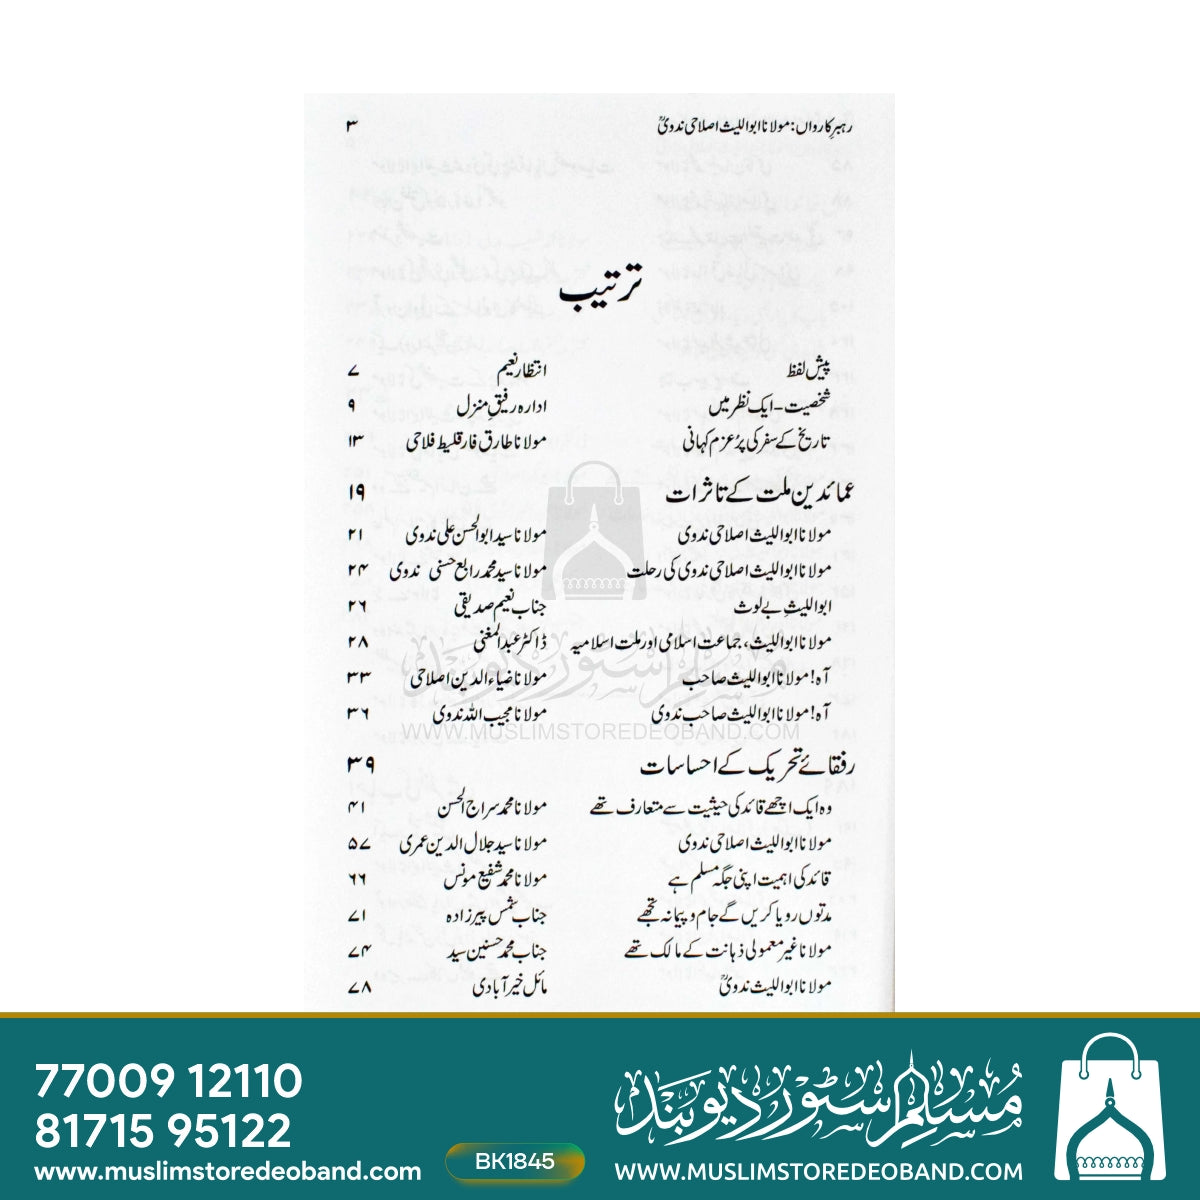 رہبرِ کارواں: مولانا ابواللیث اصلاحی ندویؒ ۳
ترتیب
پیش لفظ انتظار نعیم ۷
شخصیت - ایک نظر میں ادارہ رفیق منزل ۹
تاریخ کے سفر کی پُر عزم کہانی مولانا طارق فارقلیط فلاحی ۱۳
عمائدین ملت کے تاثرات ۱۹
مولانا ابواللیث اصلاحی ندوی مولانا سید ابوالحسن علی ندوی ۲۱
مولانا ابواللیث اصلاحی ندوی کی رحلت مولانا سید محمد رابع حسنی ندوی ۲۴
ابواللیثِ بے لوث جناب نعیم صدیقی ۲۶
مولانا ابواللیث، جماعت اسلامی اور ملت اسلامیہ ڈاکٹر عبدالمغنی ۲۸
آہ! مولانا ابواللیث صاحب مولانا ضیاء الدین اصلاحی ۳۳
آہ! مولانا ابواللیث صاحب ندوی مولانا مجیب اللہ ندوی ۳۶
رفقائے تحریک کے احساسات ۳۹
وہ ایک اچھے قائد کی حیثیت سے متعارف تھے مولانا محمد سراج الحسن ۴۱
مولانا ابواللیث اصلاحی ندوی مولانا سید جلال الدین عمری ۵۷
قائد کی اہمیت اپنی جگہ مسلم ہے مولانا محمد شفیع مونس ۶۶
مدتوں رویا کریں گے جام و پیمانہ تجھے جناب شمس پیرزادہ ۷۱
مولانا غیر معمولی ذہانت کے مالک تھے جناب محمد حسنین سید ۷۴
مولانا ابواللیث ندویؒ مائل خیر آبادی ۷۸
مسلم سٹور دیوبند
WWW.MUSLIMSTOREDEOBAND.COM
77009 12110
81715 95122
www.muslimstoredeoband.com
BK1845
مسلم سٹور دیوبند
WWW.MUSLIMSTOREDEOBAND.COM